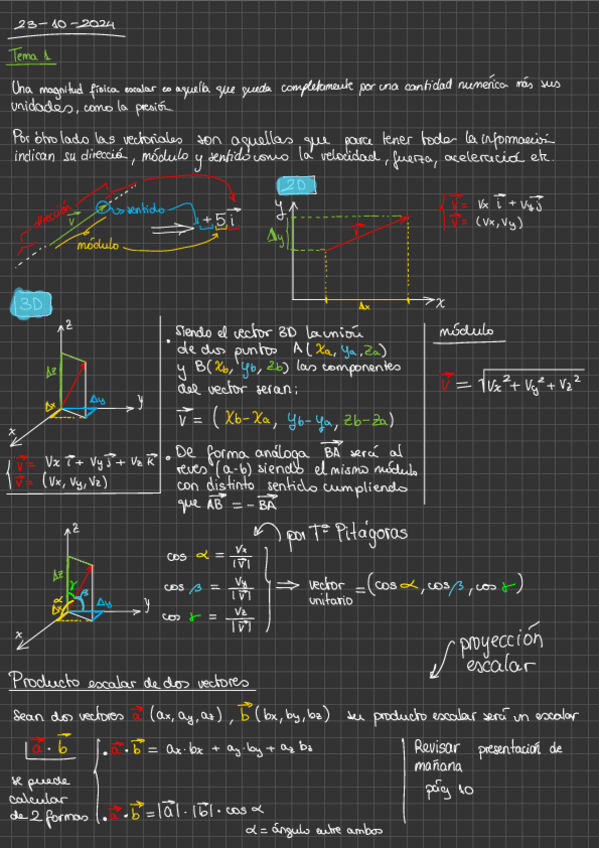 23-10-2024
Tema 1
Una magnitud física escalar es aquella que queda completamente por una cantidad numérica más sus
unidades, como la presión
Por otro lado las vectoriales son aquellas que para tener toda la información
indican su dirección, módulo y sentido como la velocidad, fuerza, aceleración etc.
dirección
v⃗
sentido
módulo
+5 i⃗
2D
y
Δy
v⃗
Δx
x
v⃗ = vx i⃗ + vy j⃗
v⃗ = (vx, vy)
3D
z
Δz
Δx
Δy
y
x
v⃗ = Vx i⃗ + Vy j⃗ + Vz k⃗
v⃗ = (Vx, Vy, Vz)
• Siendo el vector 3D la unión
de dos puntos A (xa, ya, za)
y B (xb, yb, zb) las componentes
del vector seran:
v⃗ = (xb-xa, yb-ya, zb-za)
• De forma análoga BA⃗ será al
reves (a-b) siendo el mismo módulo
con distinto sentido cumpliendo
que AB⃗ = -BA⃗
módulo
v⃗ = √Vx² + Vy² + Vz²
z
Δz
γ
α
β
Δx
Δy
y
x
por Tª Pitágoras
cos α = Vx / |V⃗|
cos β = Vy / |V⃗|
cos γ = Vz / |V⃗|
⇒ vector
unitario = (cos α, cos β, cos γ)
proyección
escalar
Producto escalar de dos vectores
Sean dos vectores a⃗ (ax, ay, az), b⃗ (bx, by, bz) su producto escalar será un escalar
a⃗ · b⃗
se puede
calcular
de 2 formas
• a⃗ · b⃗ = ax·bx + ay·by + az bz
• a⃗ · b⃗ = |a⃗| · |b⃗| · cos α
α = ángulo entre ambos
Revisar presentación de
mañana
pág 10